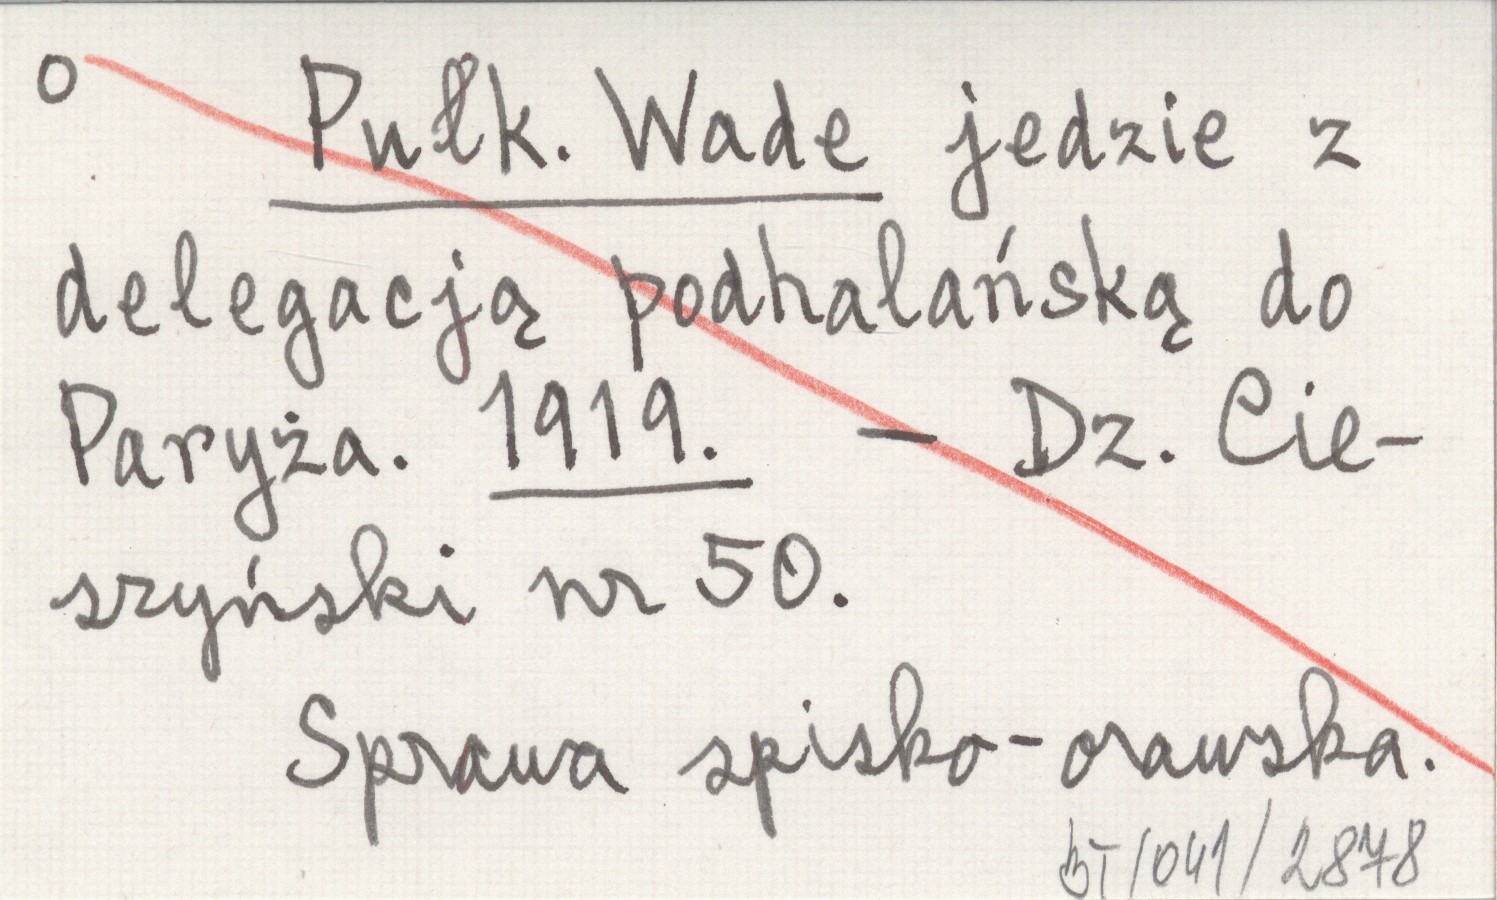 o Pułk. Wade jedzie z
delegacją podhalańską do
Paryża. 1919. – Dz. Cie-
szyński nr 50.
Sprawa spisko-orawska.
BT/041/2878